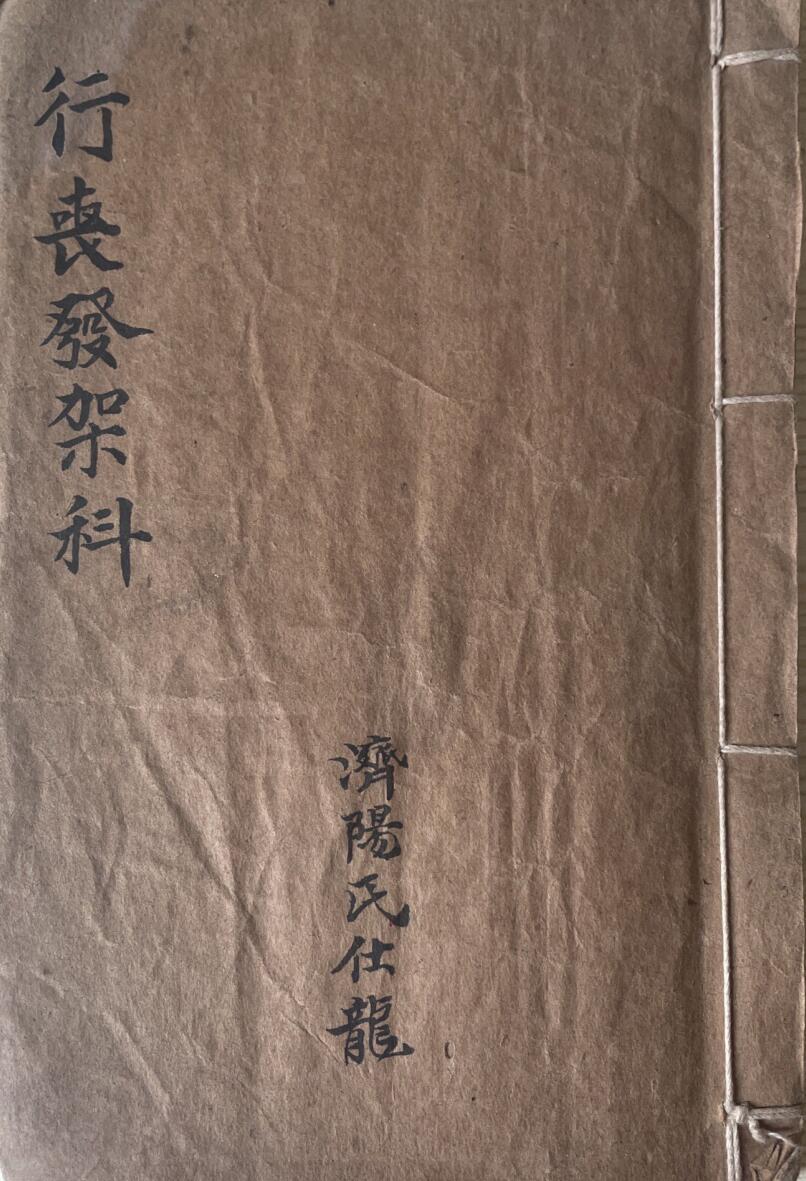 行喪發架科
濟陽民仕龍